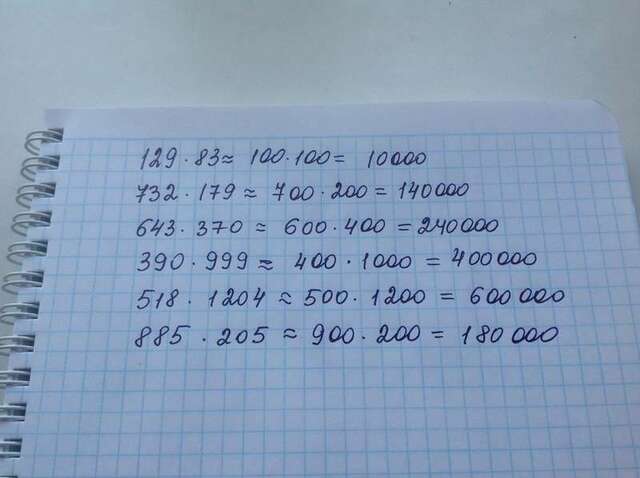 129 · 83 ≈ 100 · 100 = 10000
732 · 179 ≈ 700 · 200 = 140000
643 · 370 ≈ 600 · 400 = 240000
390 · 999 ≈ 400 · 1000 = 400000
518 · 1204 ≈ 500 · 1200 = 600 000
885 · 205 ≈ 900 · 200 = 180 000